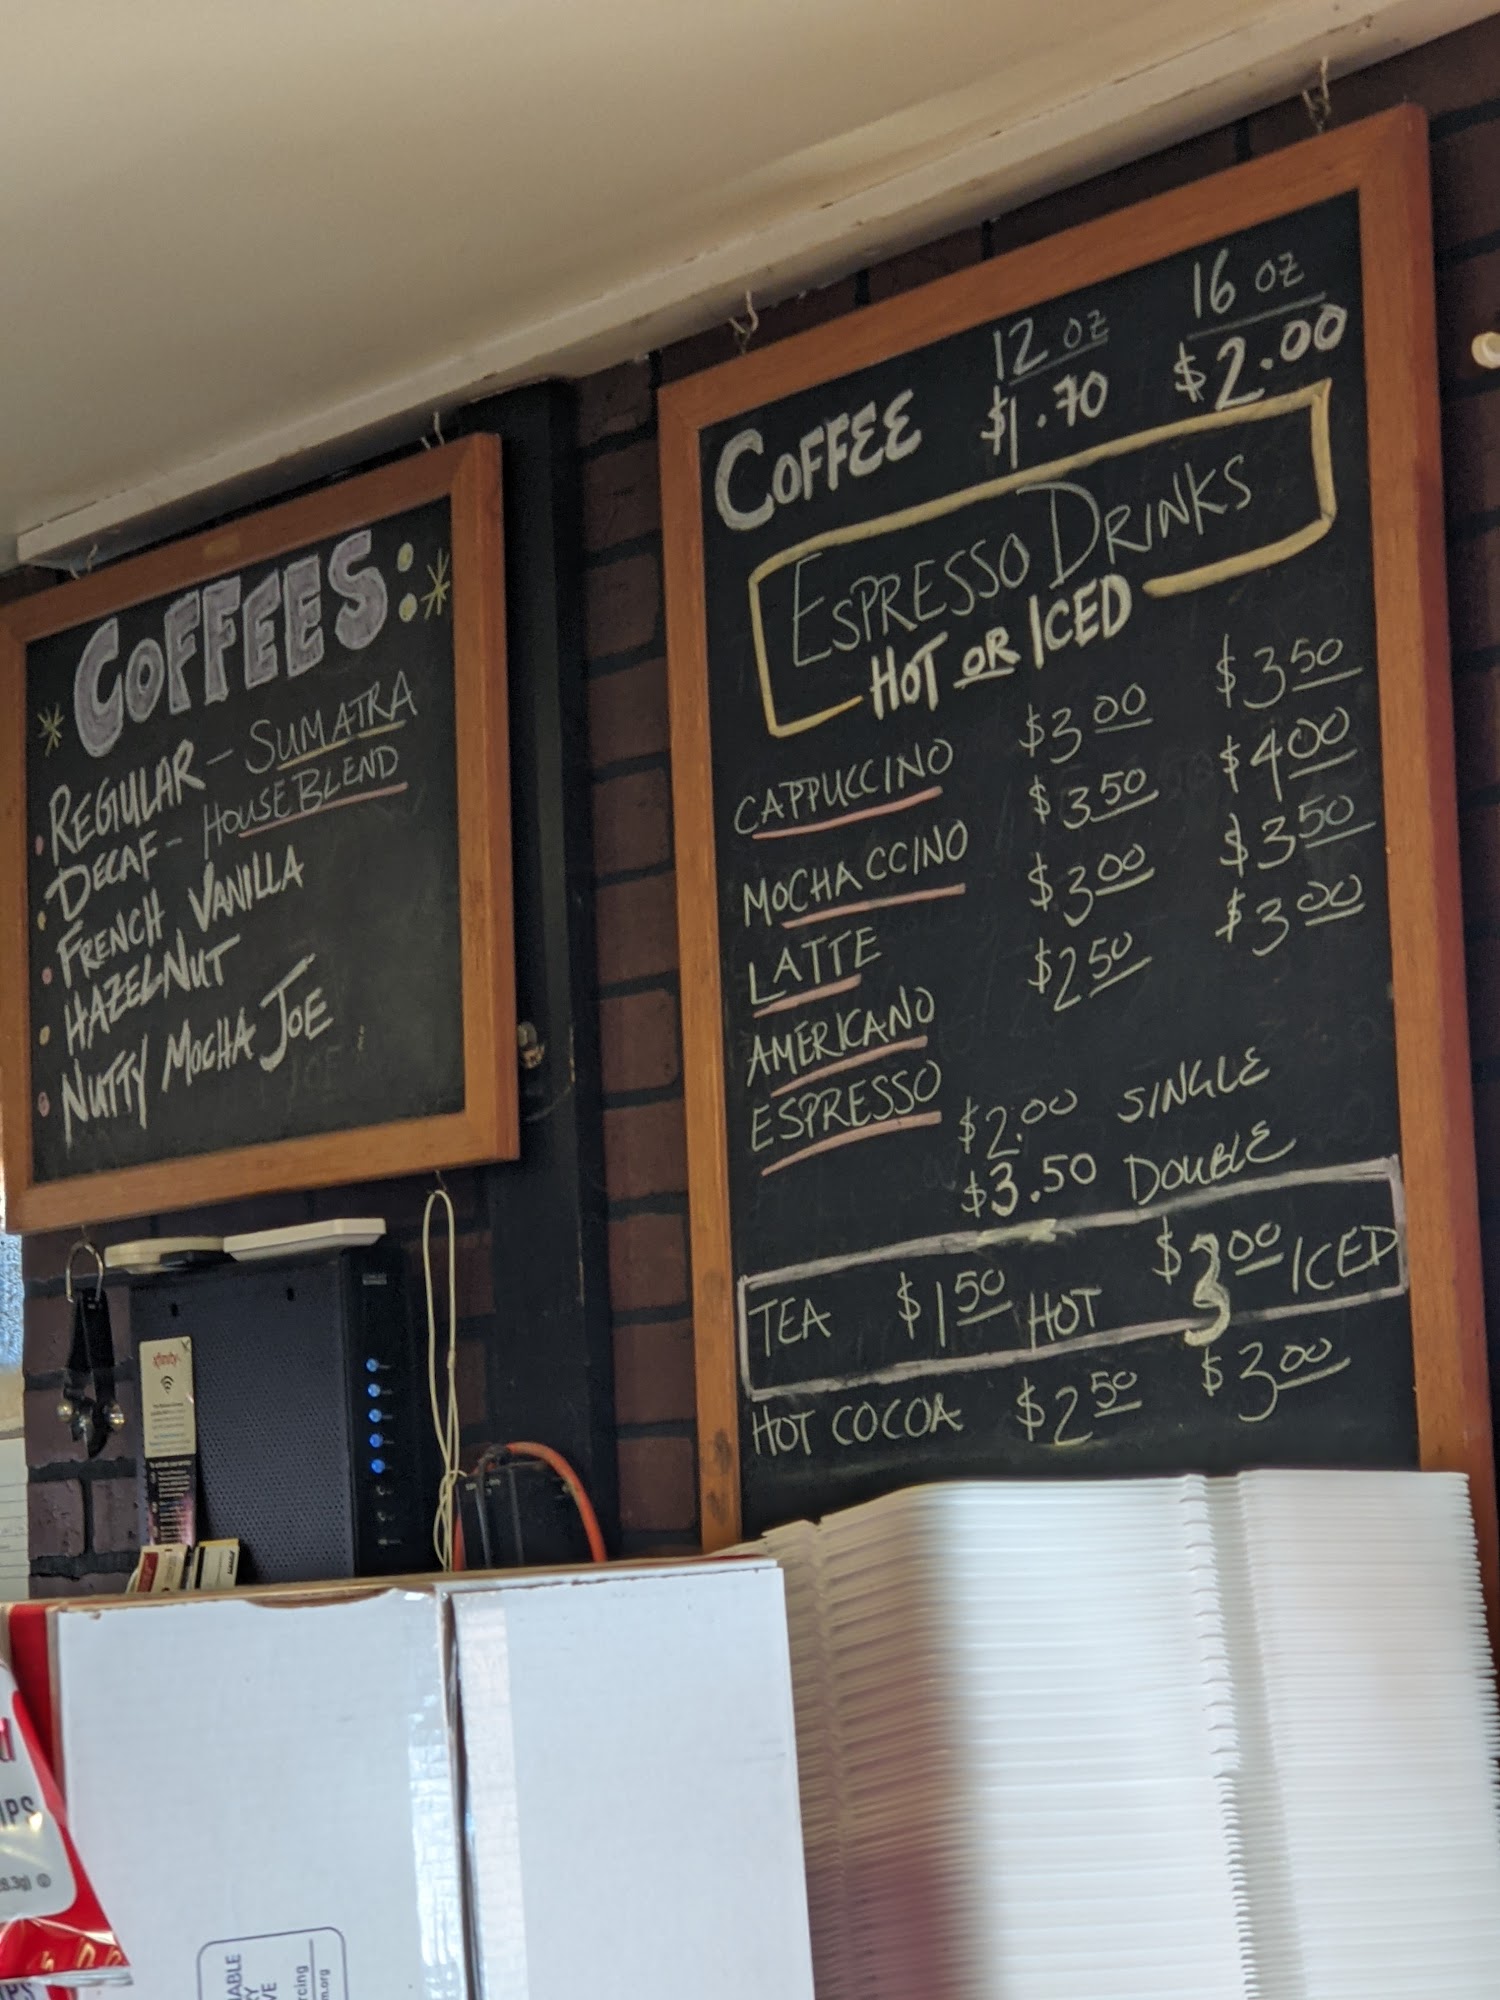 COFFEES:
REGULAR - SUMATRA
DECAF - HOUSE BLEND
FRENCH VANILLA
HAZELNUT
NUTTY MOCHA JOE
12 oz 16 oz
COFFEE $1.70 $2.00
ESPRESSO DRINKS
HOT OR ICED
CAPPUCCINO $3.00 $3.50
MOCHACCINO $3.50 $4.00
LATTE $3.00 $3.50
AMERICANO $2.50 $3.00
ESPRESSO $2.00 SINGLE
$3.50 DOUBLE
TEA $1.50 HOT $3.00 ICED
HOT COCOA $2.50 $3.00
xfinity